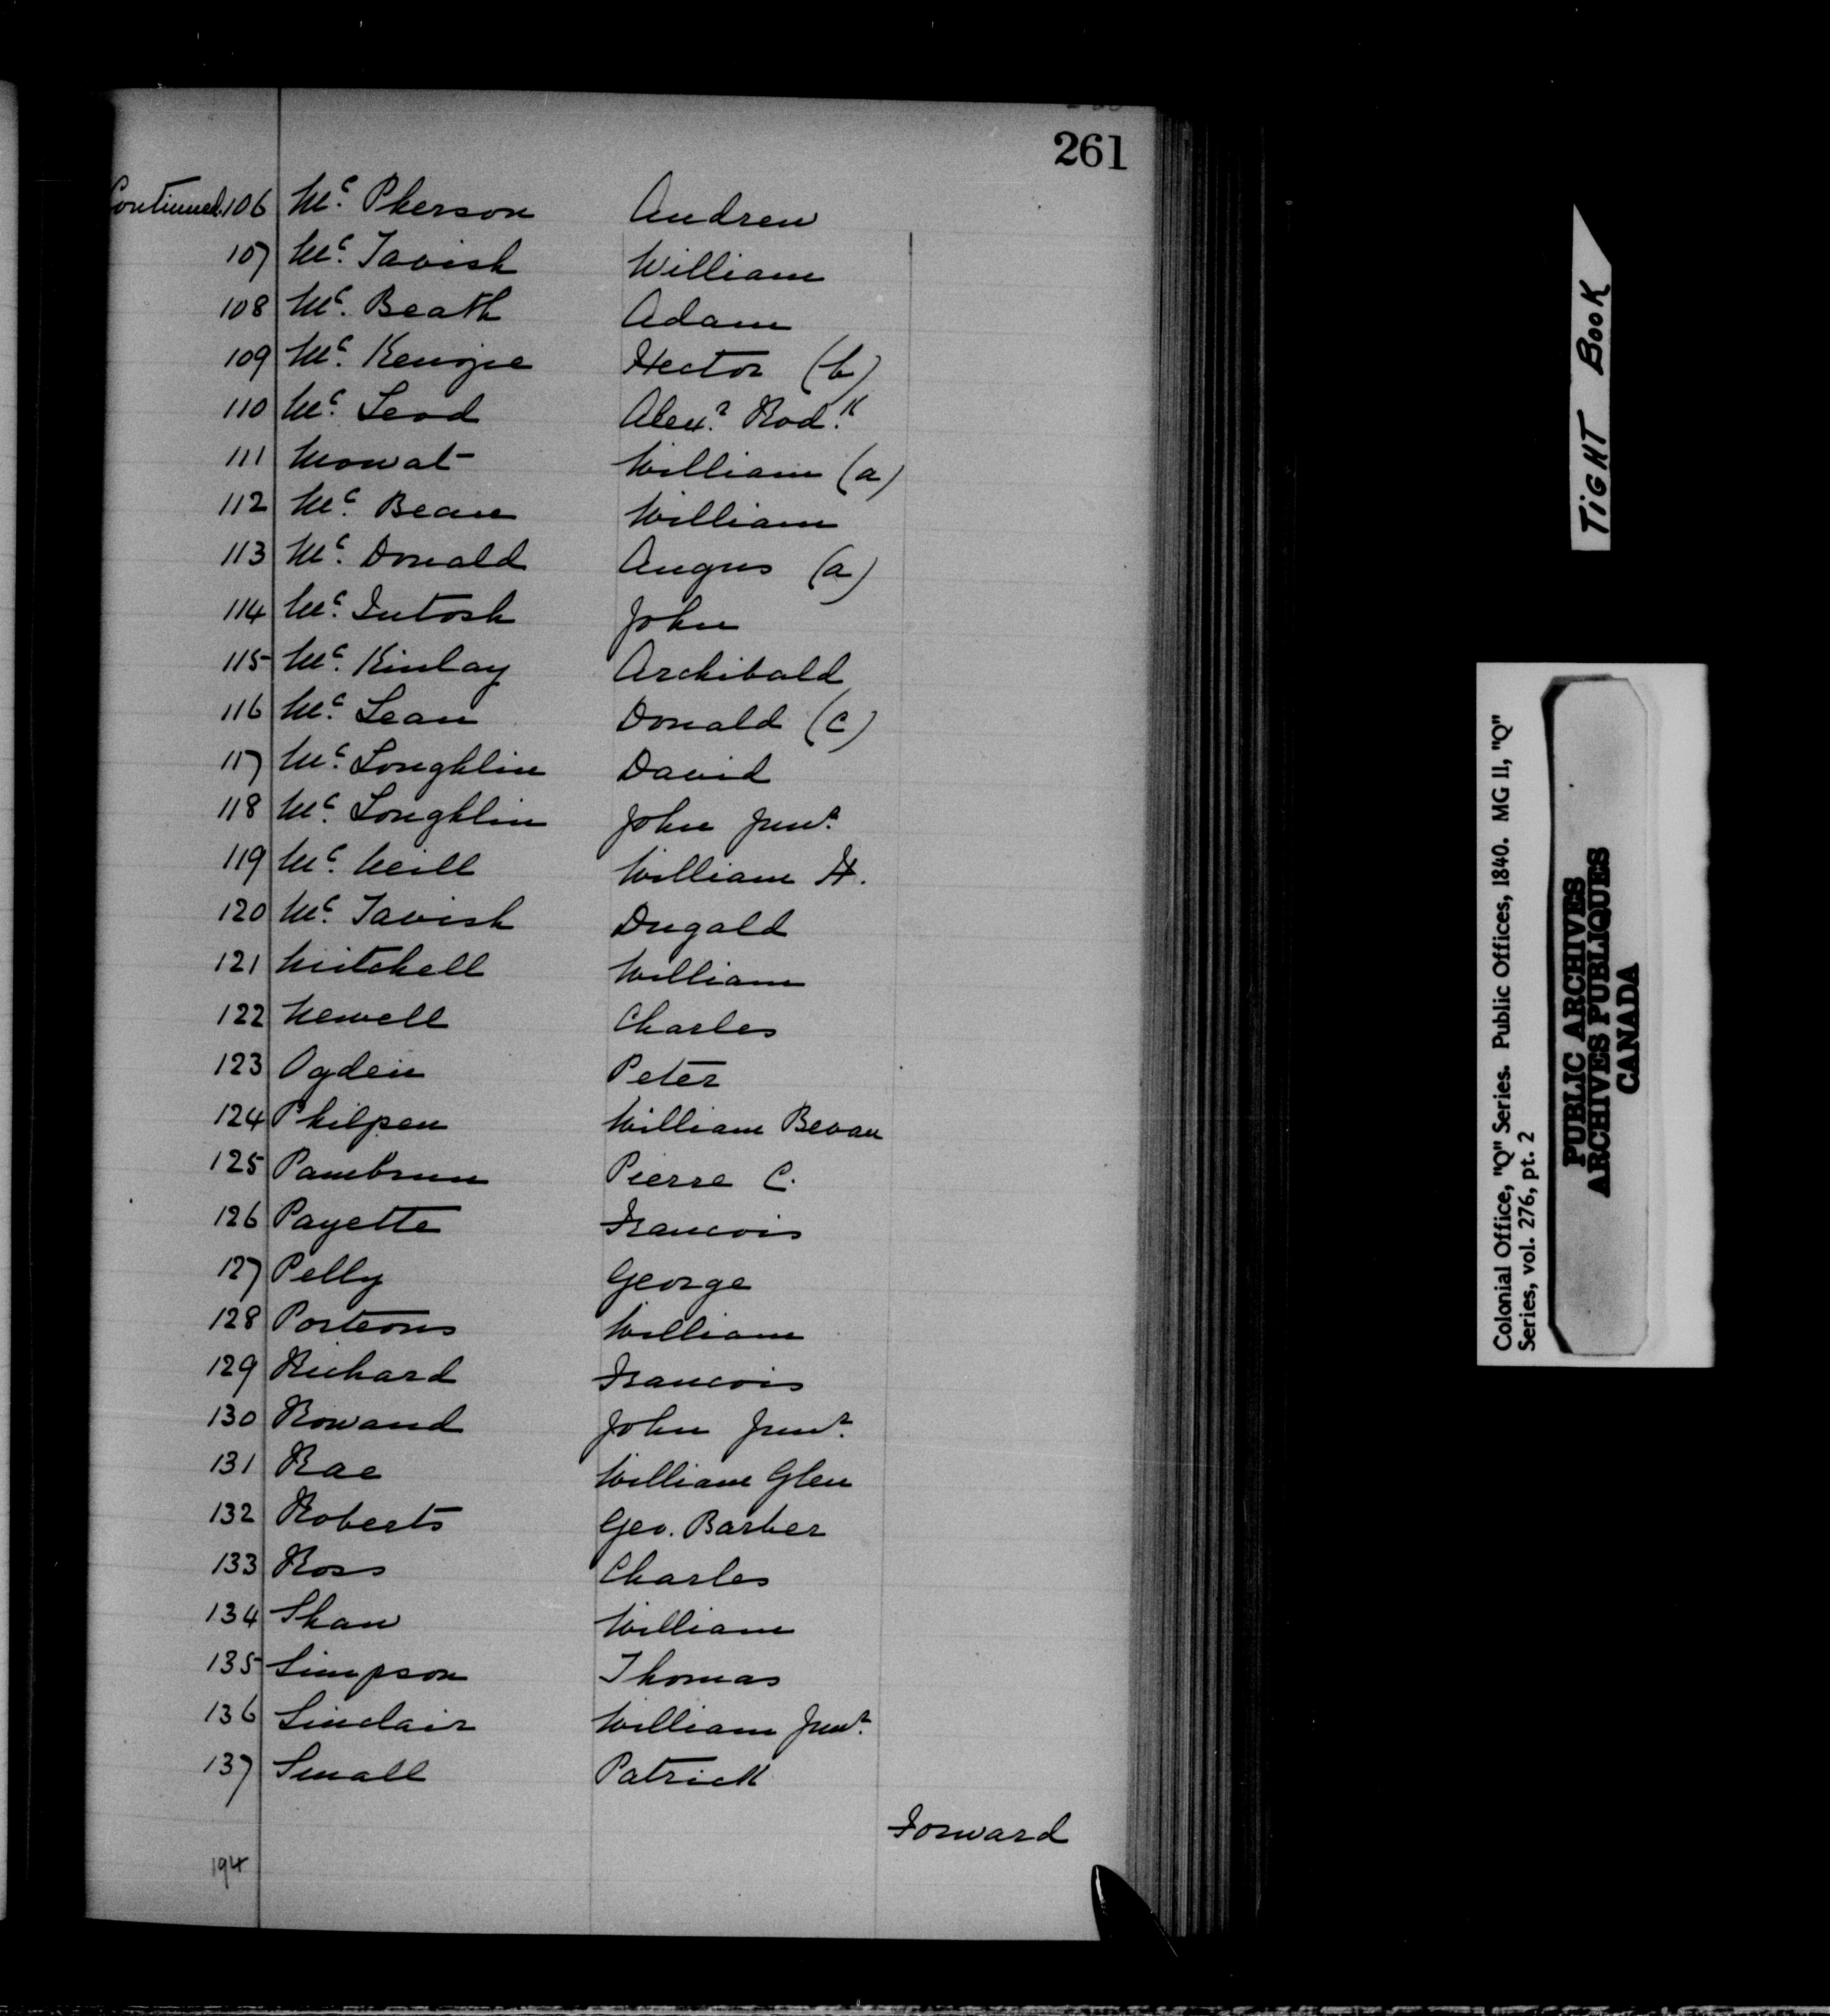 261
Continued. 106 Mc. Pherson Andrew
107 Mc. Tavish William
108 Mc. Beath Adam
109 Mc. Kenzie Hector (b)
110 Mc. Leod Alexr. Rodk.
111 Mowat William (a)
112 Mc. Bean William
113 Mc. Donald Angus (a)
114 Mc. Intosh John
115 Mc. Kinlay Archibald
116 Mc. Lean Donald (c)
117 Mc. Loughlin David
118 Mc. Loughlin John Junr.
119 Mc. Neill William H.
120 Mc. Tavish Dugald
121 Mitchell William
122 Newell Charles
123 Ogden Peter
124 Philpen William Bevan
125 Pambrun Pierre C.
126 Payette Francois
127 Pelly George
128 Porteous William
129 Richard Francois
130 Rowand John Junr.
131 Rae William Glen
132 Roberts Geo. Barber
133 Ross Charles
134 Shaw William
135 Simpson Thomas
136 Sinclair William Junr.
137 Small Patrick
Forward
194
TIGHT BOOK
Colonial Office, "Q" Series. Public Offices, 1840. MG 11, "Q"
Series, vol. 276, pt. 2
PUBLIC ARCHIVES
ARCHIVES PUBLIQUES
CANADA